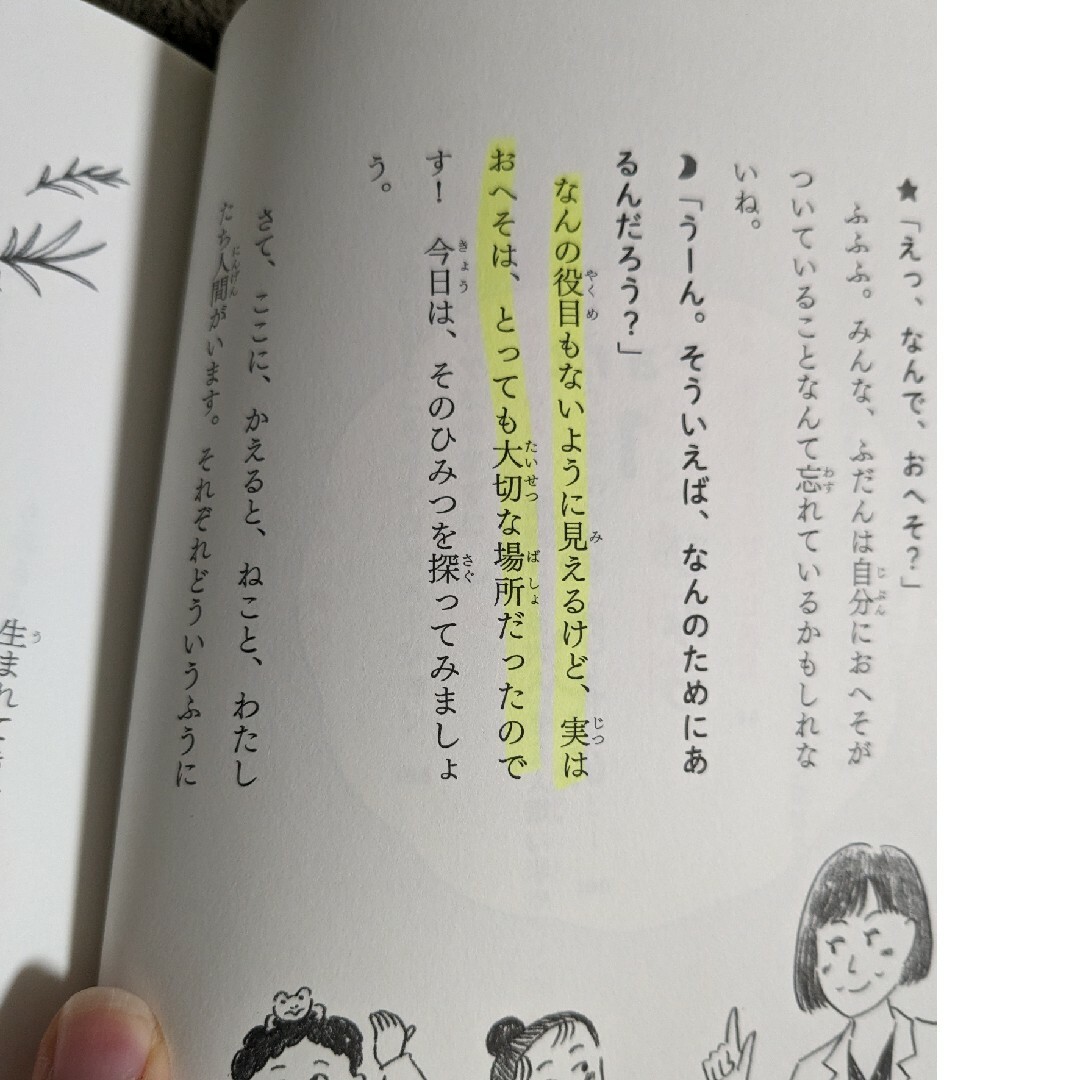 ★「えっ、なんで、おへそ？」
ふふふ。みんな、ふだんは自分におへそが
ついていることなんて忘れているかもしれな
いね。
☽「うーん。そういえば、なんのためにあ
るんだろう？」
なんの役目もないように見えるけど、実は
おへそは、とっても大切な場所だったので
す！　今日は、そのひみつを探ってみましょ
う。
さて、ここに、かえると、ねこと、わたし
たち人間がいます。それぞれどういうふうに
生まれて